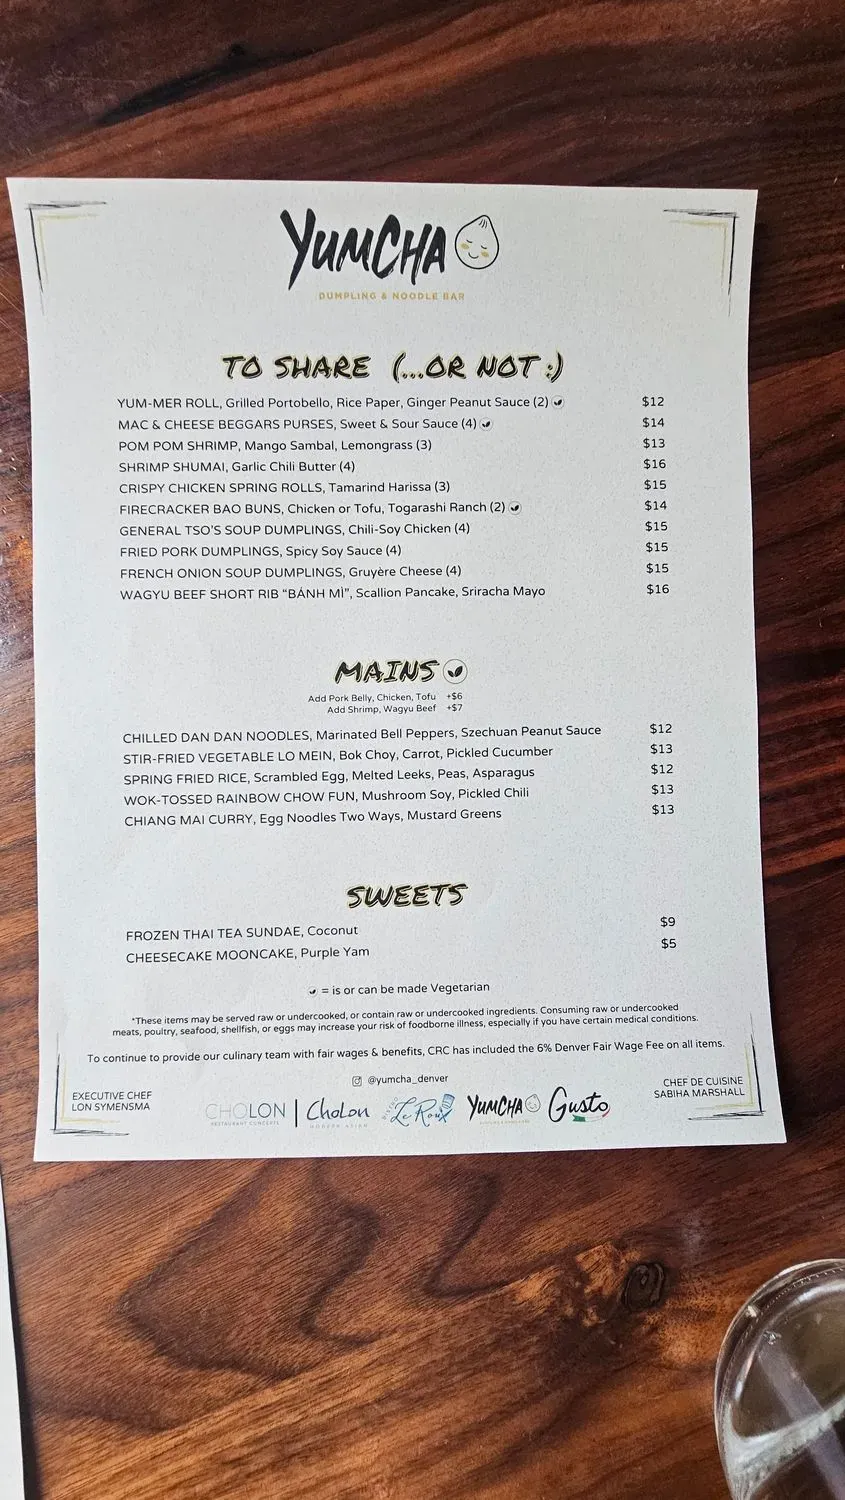 YUMCHA
DUMPLING & NOODLE BAR
TO SHARE (...OR NOT :)
YUM-MER ROLL, Grilled Portobello, Rice Paper, Ginger Peanut Sauce (2) $12
MAC & CHEESE BEGGARS PURSES, Sweet & Sour Sauce (4) $14
POM POM SHRIMP, Mango Sambal, Lemongrass (3) $13
SHRIMP SHUMAI, Garlic Chili Butter (4) $16
CRISPY CHICKEN SPRING ROLLS, Tamarind Harissa (3) $15
FIRECRACKER BAO BUNS, Chicken or Tofu, Togarashi Ranch (2) $14
GENERAL TSO'S SOUP DUMPLINGS, Chili-Soy Chicken (4) $15
FRIED PORK DUMPLINGS, Spicy Soy Sauce (4) $15
FRENCH ONION SOUP DUMPLINGS, Gruyère Cheese (4) $15
WAGYU BEEF SHORT RIB “BÁNH MÌ”, Scallion Pancake, Sriracha Mayo $16
MAINS
Add Pork Belly, Chicken, Tofu +$6
Add Shrimp, Wagyu Beef +$7
CHILLED DAN DAN NOODLES, Marinated Bell Peppers, Szechuan Peanut Sauce $12
STIR-FRIED VEGETABLE LO MEIN, Bok Choy, Carrot, Pickled Cucumber $13
SPRING FRIED RICE, Scrambled Egg, Melted Leeks, Peas, Asparagus $12
WOK-TOSSED RAINBOW CHOW FUN, Mushroom Soy, Pickled Chili $13
CHIANG MAI CURRY, Egg Noodles Two Ways, Mustard Greens $13
SWEETS
FROZEN THAI TEA SUNDAE, Coconut $9
CHEESECAKE MOONCAKE, Purple Yam $5
= is or can be made Vegetarian
*These items may be served raw or undercooked, or contain raw or undercooked ingredients. Consuming raw or undercooked
meats, poultry, seafood, shellfish, or eggs may increase your risk of foodborne illness, especially if you have certain medical conditions.
To continue to provide our culinary team with fair wages & benefits, CRC has included the 6% Denver Fair Wage Fee on all items.
@yumcha_denver
EXECUTIVE CHEF
LON SYMENSMA
CHOLON
RESTAURANT CONCEPTS
ChoLon
MODERN ASIAN
BISTRO
LeRoux
YUMCHA
Gusto
CHEF DE CUISINE
SABIHA MARSHALL